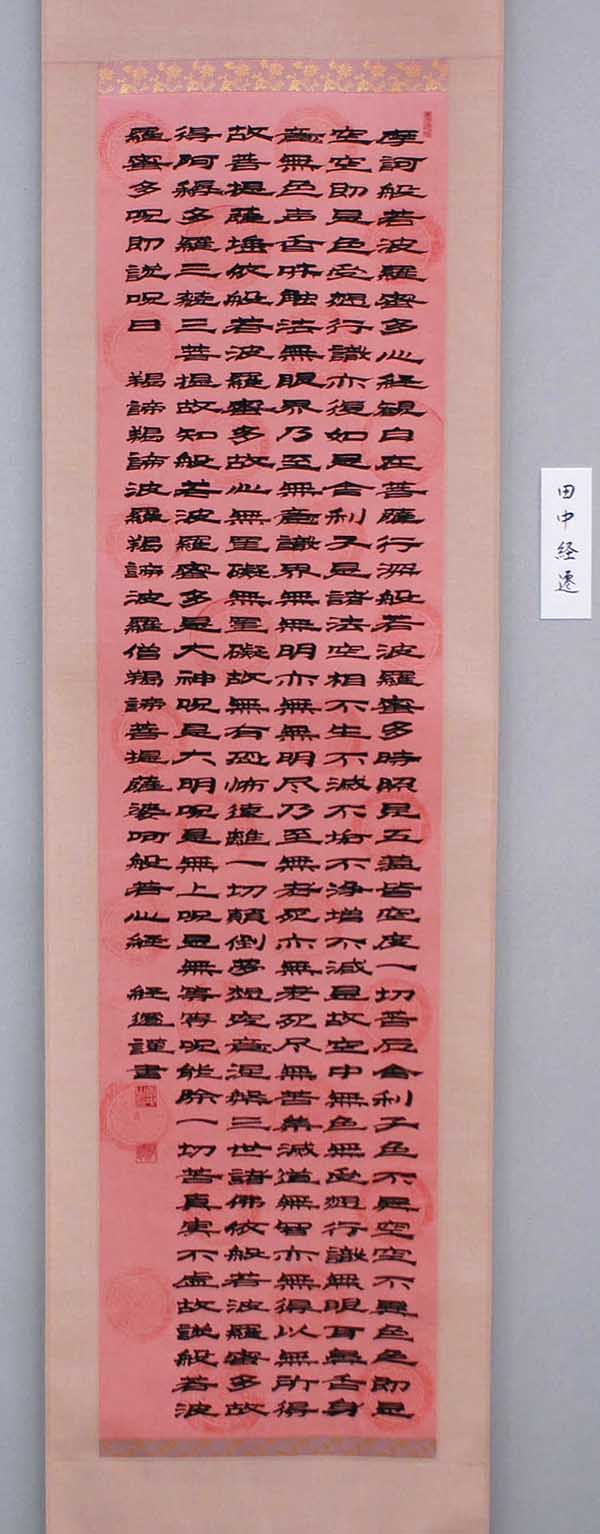 摩訶般若波羅蜜多心経観自在菩薩行深般若波羅蜜多時照見五蘊皆空度一切苦厄舎利子色不異空空不異色色即是
空空即是色受想行識亦復如是舎利子是諸法空相不生不滅不垢不浄増不減是故空中無色無受想行識無眼耳鼻舌身
意無色声香味触法無眼界乃至無意識界無無明亦無無明尽乃至無老死亦無老死尽無苦集滅道無智亦無得以無所得
故菩提薩埵依般若波羅蜜多故心無罣礙無罣礙故無有恐怖遠離一切顛倒夢想究竟涅槃三世諸佛依般若波羅蜜多故
得阿耨多羅三藐三菩提故知般若波羅蜜多是大神呪是大明呪是無上呪是無等等呪能除一切苦真実不虚故説般若波
羅蜜多呪即説呪曰 羯諦羯諦波羅羯諦波羅僧羯諦菩提薩婆呵般若心経 経遷謹書
田中経遷